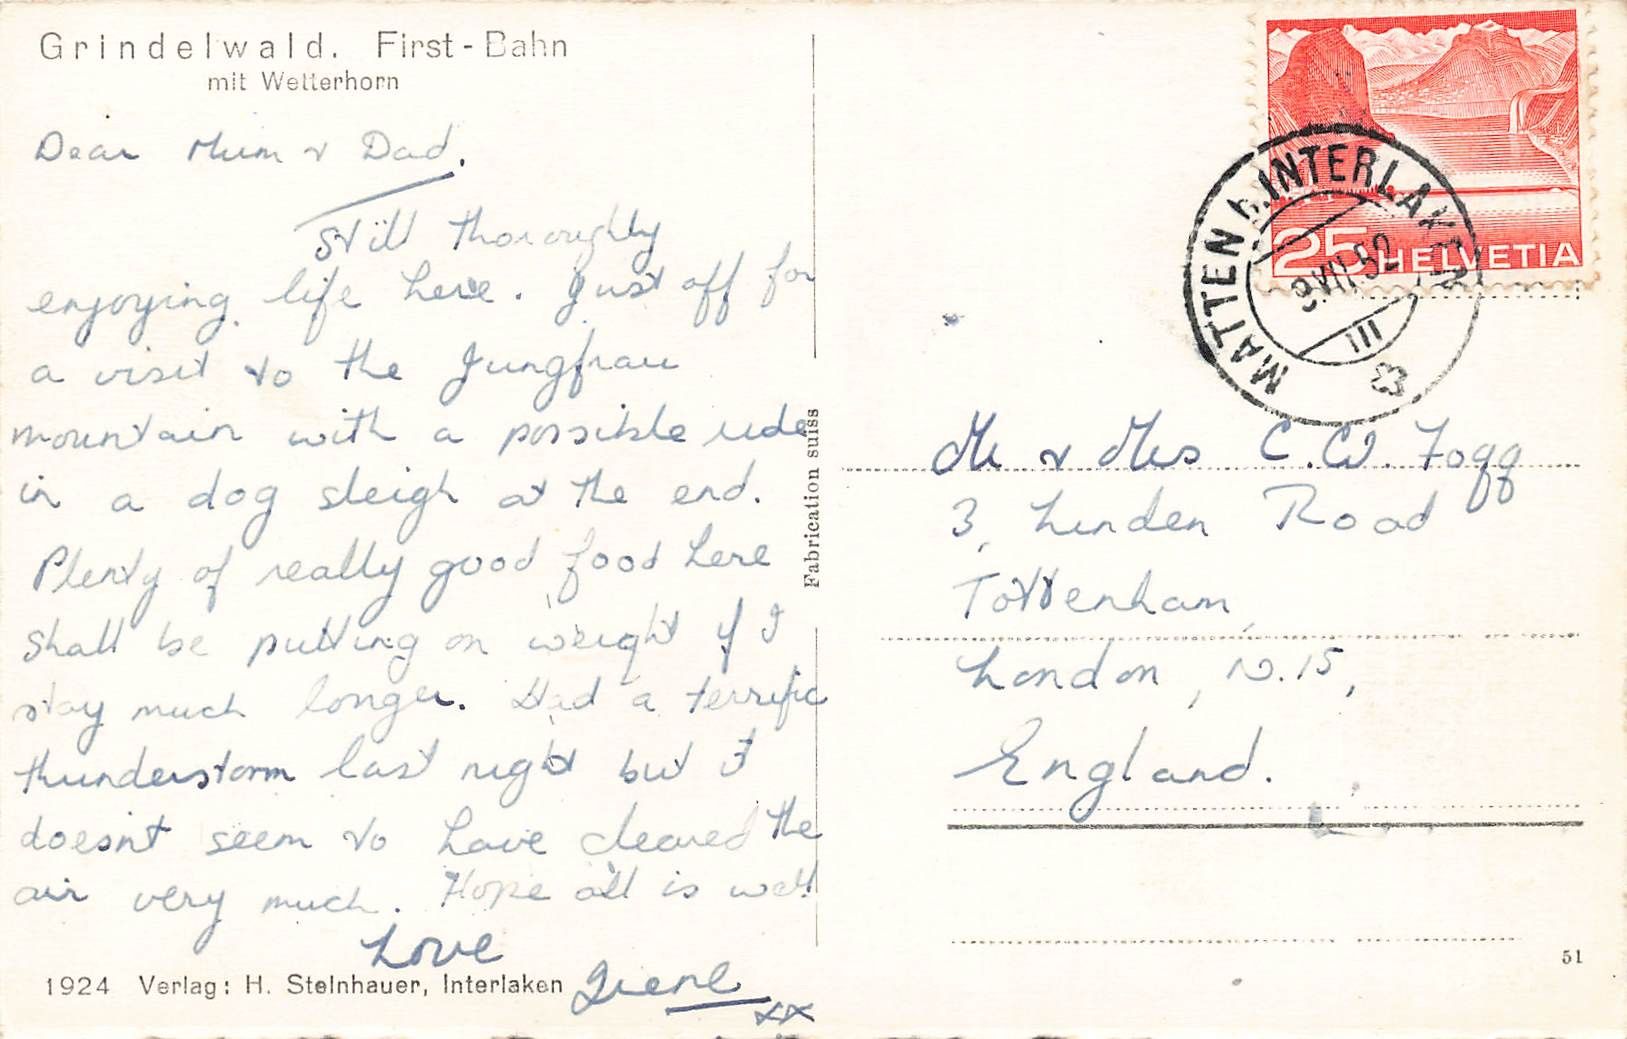 Grindelwald. First-Bahn
mit Wetterhorn
Dear Mum & Dad.
Still thoroughly
enjoying life here. Just off for
a visit to the Jungfrau
mountain with a possible ride
in a dog sleigh at the end.
Plenty of really good food here
shall be putting on weight if I
stay much longer. Had a terrific
thunderstorm last night but it
doesnt seem to have cleared the
air very much. Hope all is well
Love
Irene
xx
1924 Verlag: H. Steinhauer, Interlaken
Fabrication suiss
25 HELVETIA
MATTEN b. INTERLAKEN
9.VII.52
III
Mr & Mrs C.W. Fogg
3, Linden Road
Tottenham,
London, N.15,
England.
51